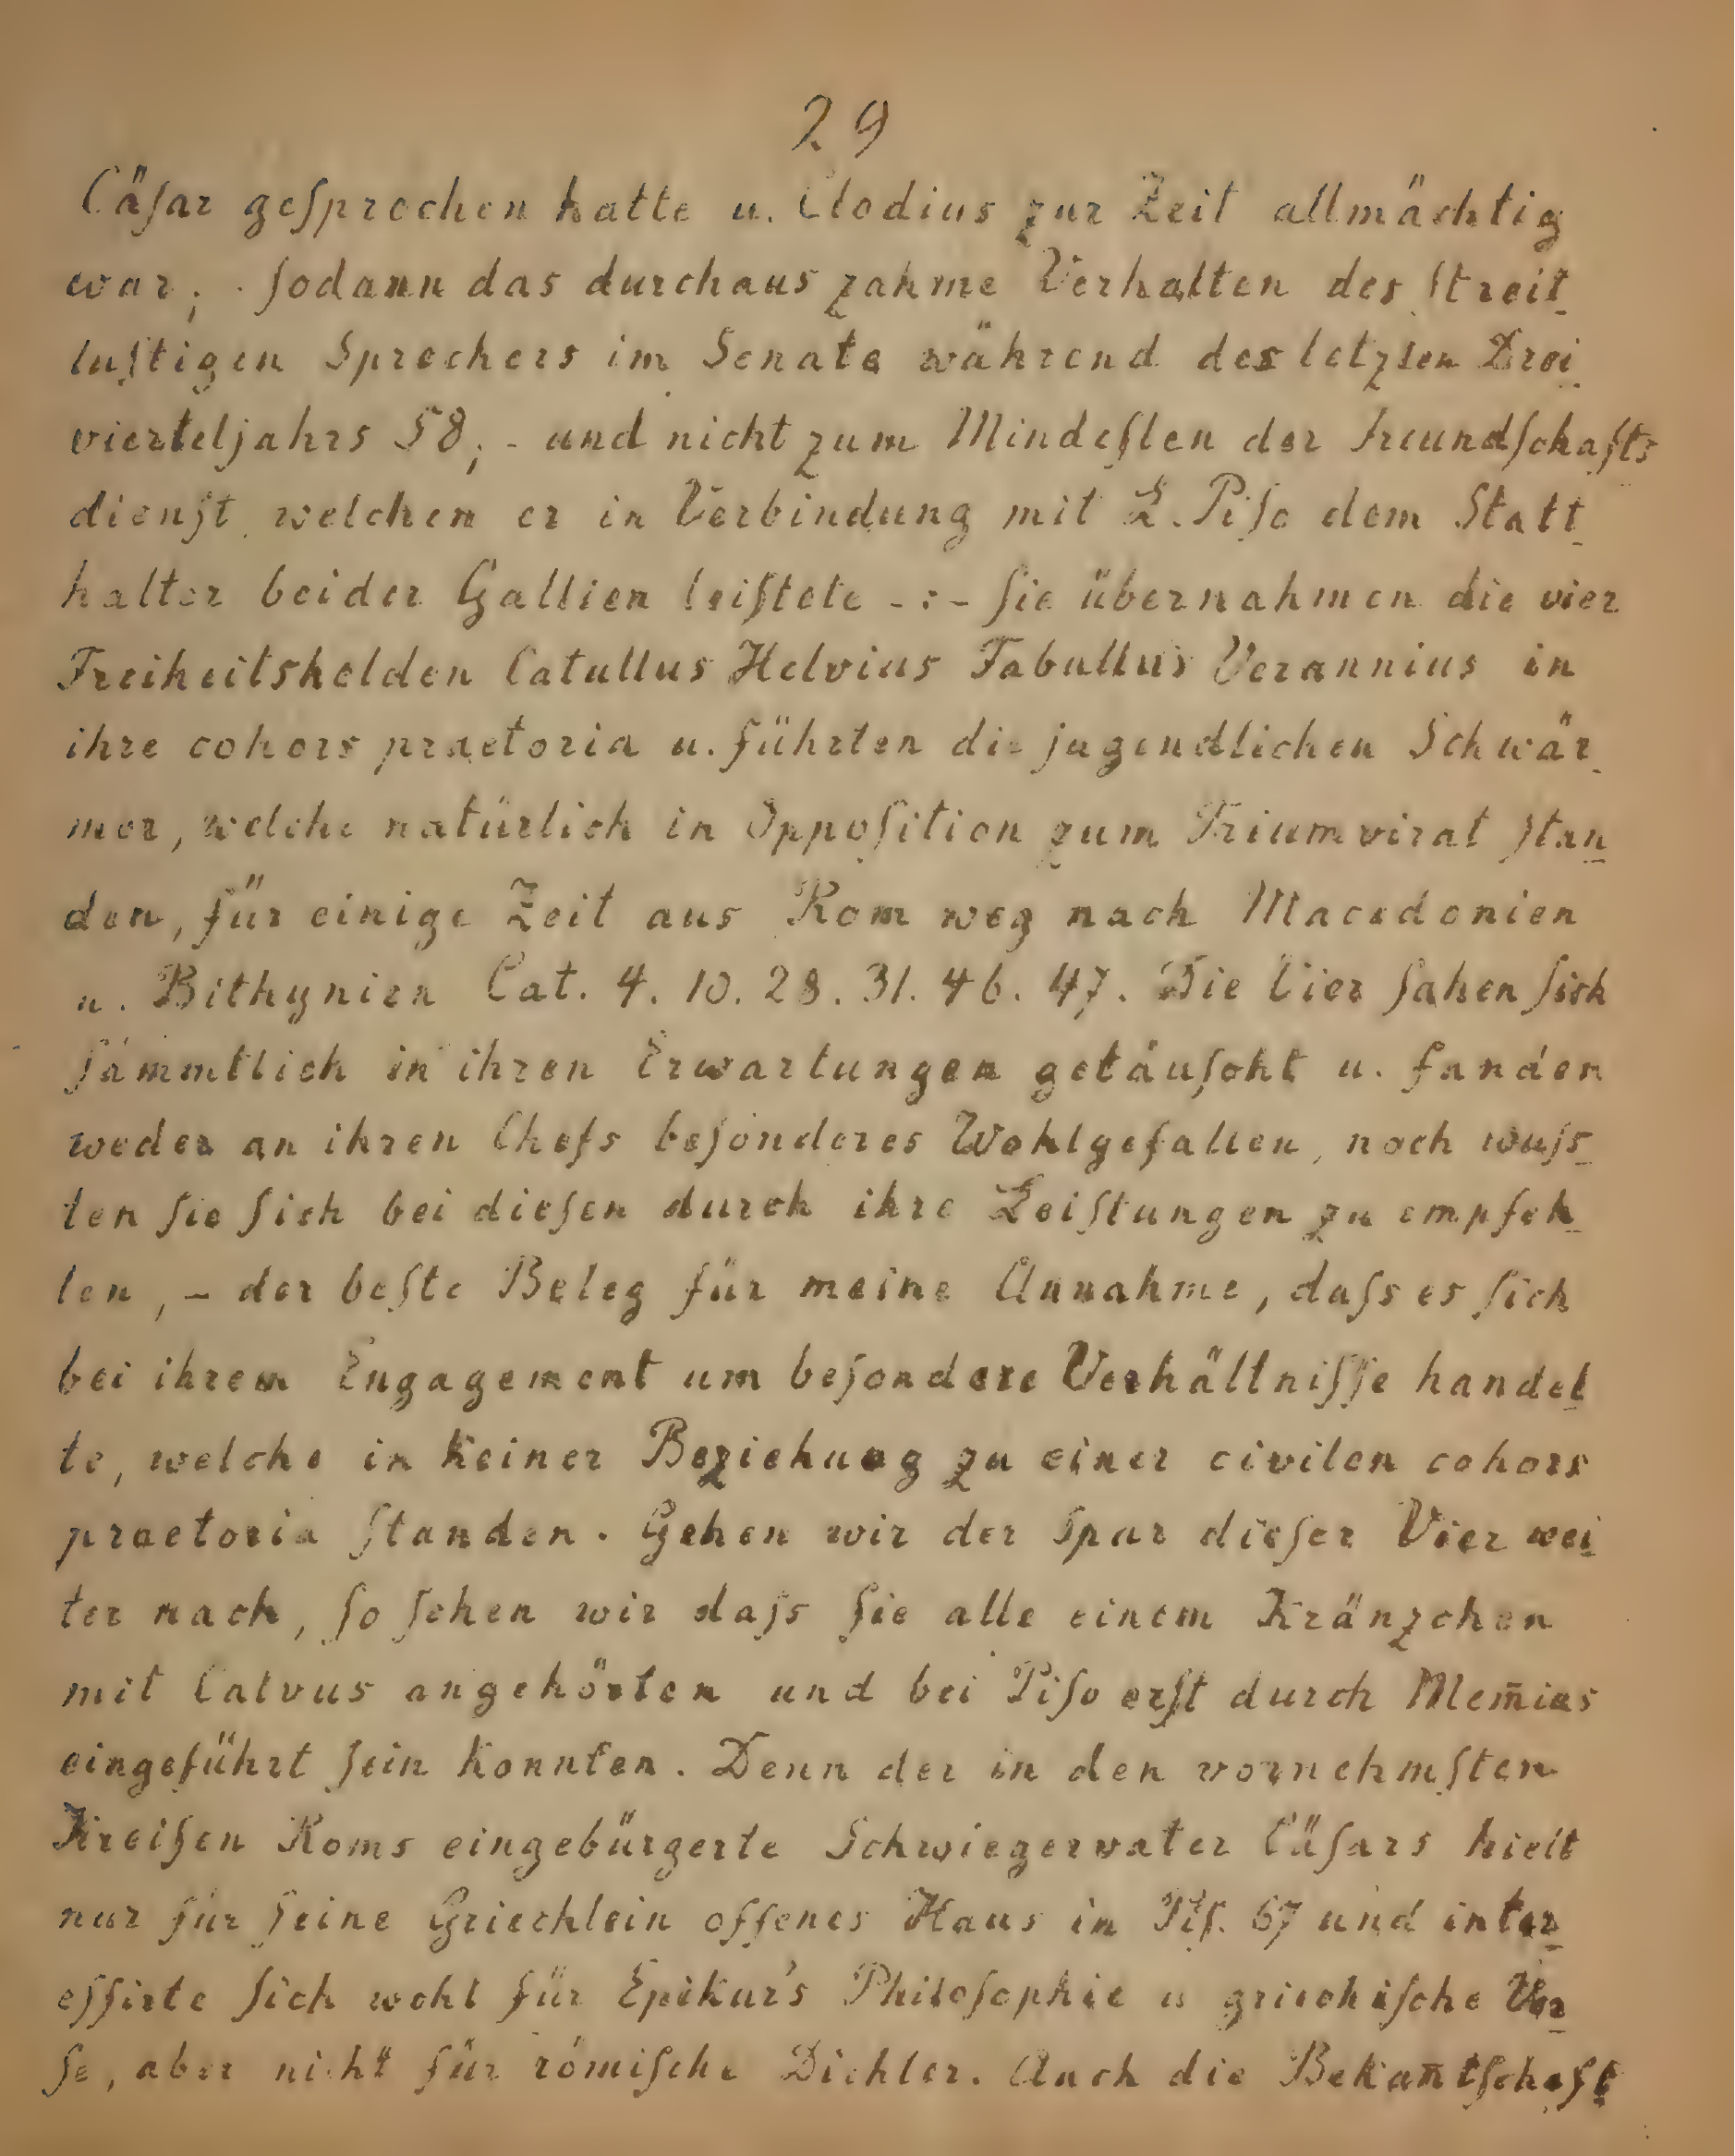 29
Cäſar geſprochen hatte u. Clodius zur Zeit allmächtig
war; - ſodann das durchaus zahme Verhalten des ſtreit-
luſtigen Sprechers im Senate während des letzten Drei-
vierteljahrs 58; - und nicht zum Mindeſten der Freundſchafts-
dienſt welchen er in Verbindung mit L. Piſo dem Statt-
halter beider Gallien leiſtete -:- ſie übernahmen die vier
Freiheitshelden Catullus Helvius Fabullus Verannius in
ihre cohors praetoria u. führten die jugendlichen Schwär-
mer, welche natürlich in Oppoſition zum Triumvirat ſtan-
den, für einige Zeit aus Rom weg nach Macedonien
u. Bithynien Cat. 4. 10. 28. 31. 46. 47. Die Vier ſahen ſich
ſämmtlich in ihren Erwartungen getäuſcht u. fanden
weder an ihren Chefs beſonderes Wohlgefallen, noch wuſs-
ten ſie ſich bei dieſen durch ihre Leiſtungen zu empfeh-
len, – der beſte Beleg für meine Annahme, daſs es ſich
bei ihrem Engagement um beſondere Verhältniſſe handel-
te, welche in keiner Beziehung zu einer civilen cohors
praetoria ſtanden. Gehen wir der Spur dieſer Vier wei-
ter nach, ſo ſehen wir daſs ſie alle einem Kränzchen
mit Calvus angehörten und bei Piſo erſt durch Mem̄ius
eingeführt ſein konnten. Denn der in den vornehmſten
Kreiſen Roms eingebürgerte Schwiegervater Cäſars hielt
nur für ſeine Griechlein offenes Haus in Piſ. 67 und inter-
eſſirte ſich wohl für Epikur's Philoſophie u griechiſche Ver-
ſe, aber nicht für römiſche Dichter. Auch die Bekan̄tſchaft